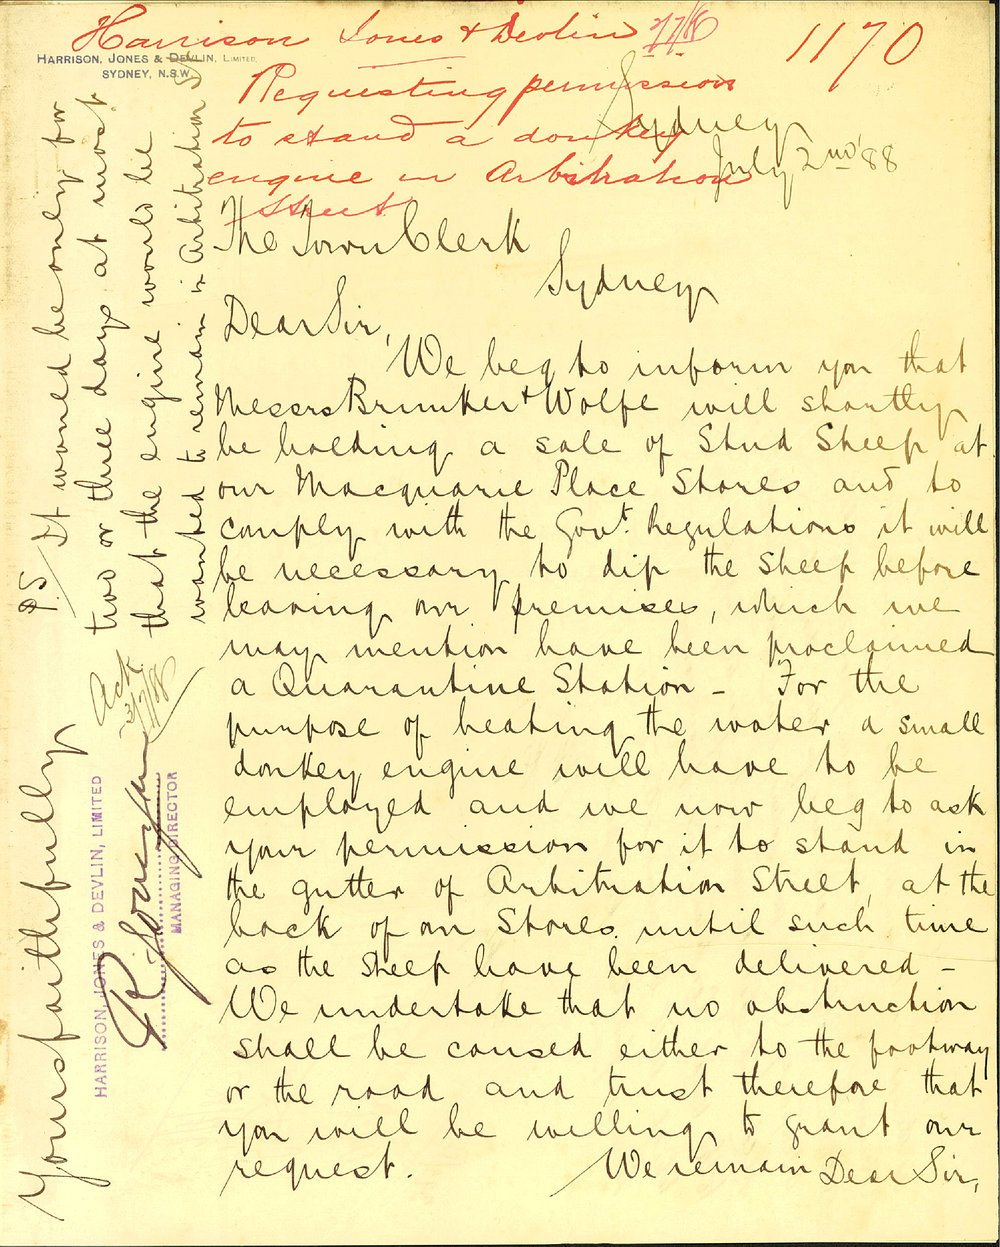 Harrison Jones & Devlin 2/7/88
1170
HARRISON, JONES & DEVLIN, LIMITED.
SYDNEY, N.S.W.
Requesting permission
to stand a donkey
engine in Arbitration
Street
Sydney
July 2nd '88
The Town Clerk
Sydney
Dear Sir,
We beg to inform you that
Messrs Brunker & Wolfe will shortly
be holding a sale of Stud Sheep at
our Macquarie Place Stores and to
comply with the Govt. Regulations it will
be necessary to dip the sheep before
leaving our premises, which we
may mention have been proclaimed
a Quarantine Station - For the
purpose of heating the water a small
donkey engine will have to be
employed and we now beg to ask
your permission for it to stand in
the gutter of Arbitration Street, at the
back of our Stores until such time
as the sheep have been delivered -
We undertake that no obstruction
shall be caused either to the footway
or the road and trust therefore that
you will be willing to grant our
request. We remain Dear Sir,
Yours faithfully
HARRISON, JONES & DEVLIN, LIMITED
MANAGING DIRECTOR
Ack
3/7/88
P.S. It would be only for
two or three days at most
that the engine would be
wanted to remain in Arbitration St